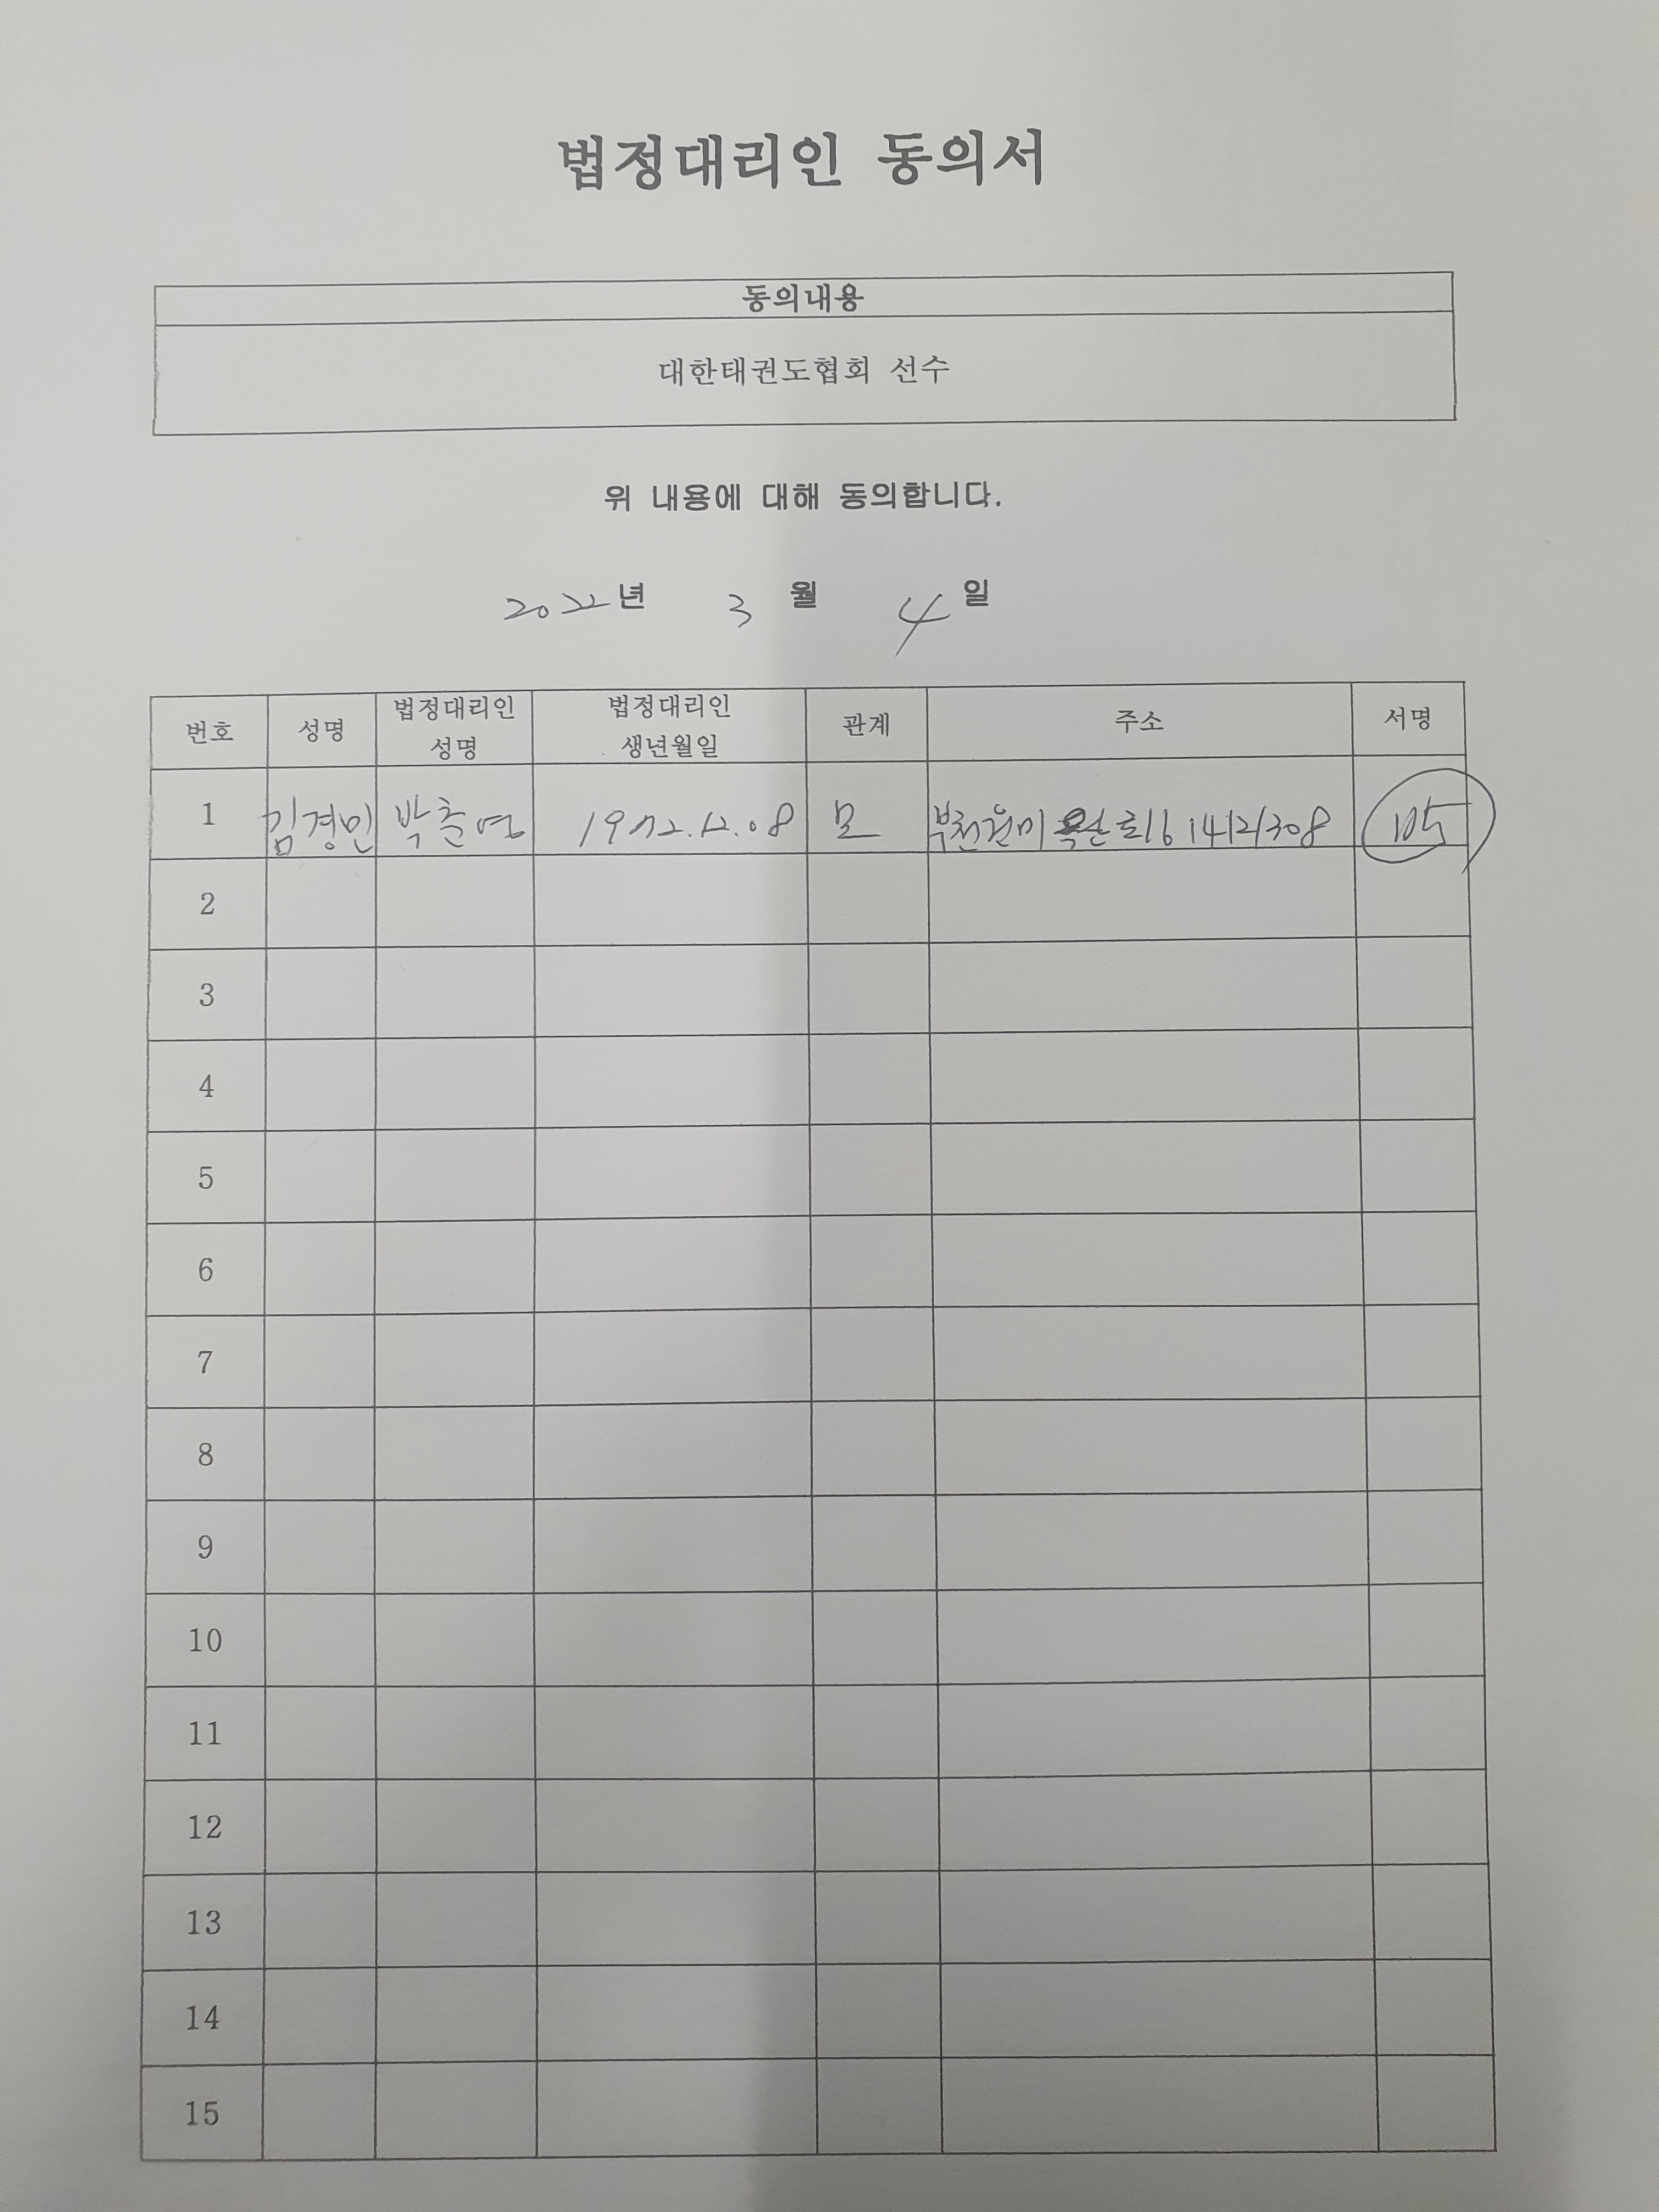 법정대리인 동의서
동의내용
대한태권도협회 선수
위 내용에 대해 동의합니다.
2022년 3월 4일
번호 성명 법정대리인 성명 법정대리인 생년월일 관계 주소 서명
1 김경민 박춘영 1972.12.08 모 부천 원미
2
3
4
5
6
7
8
9
10
11
12
13
14
15